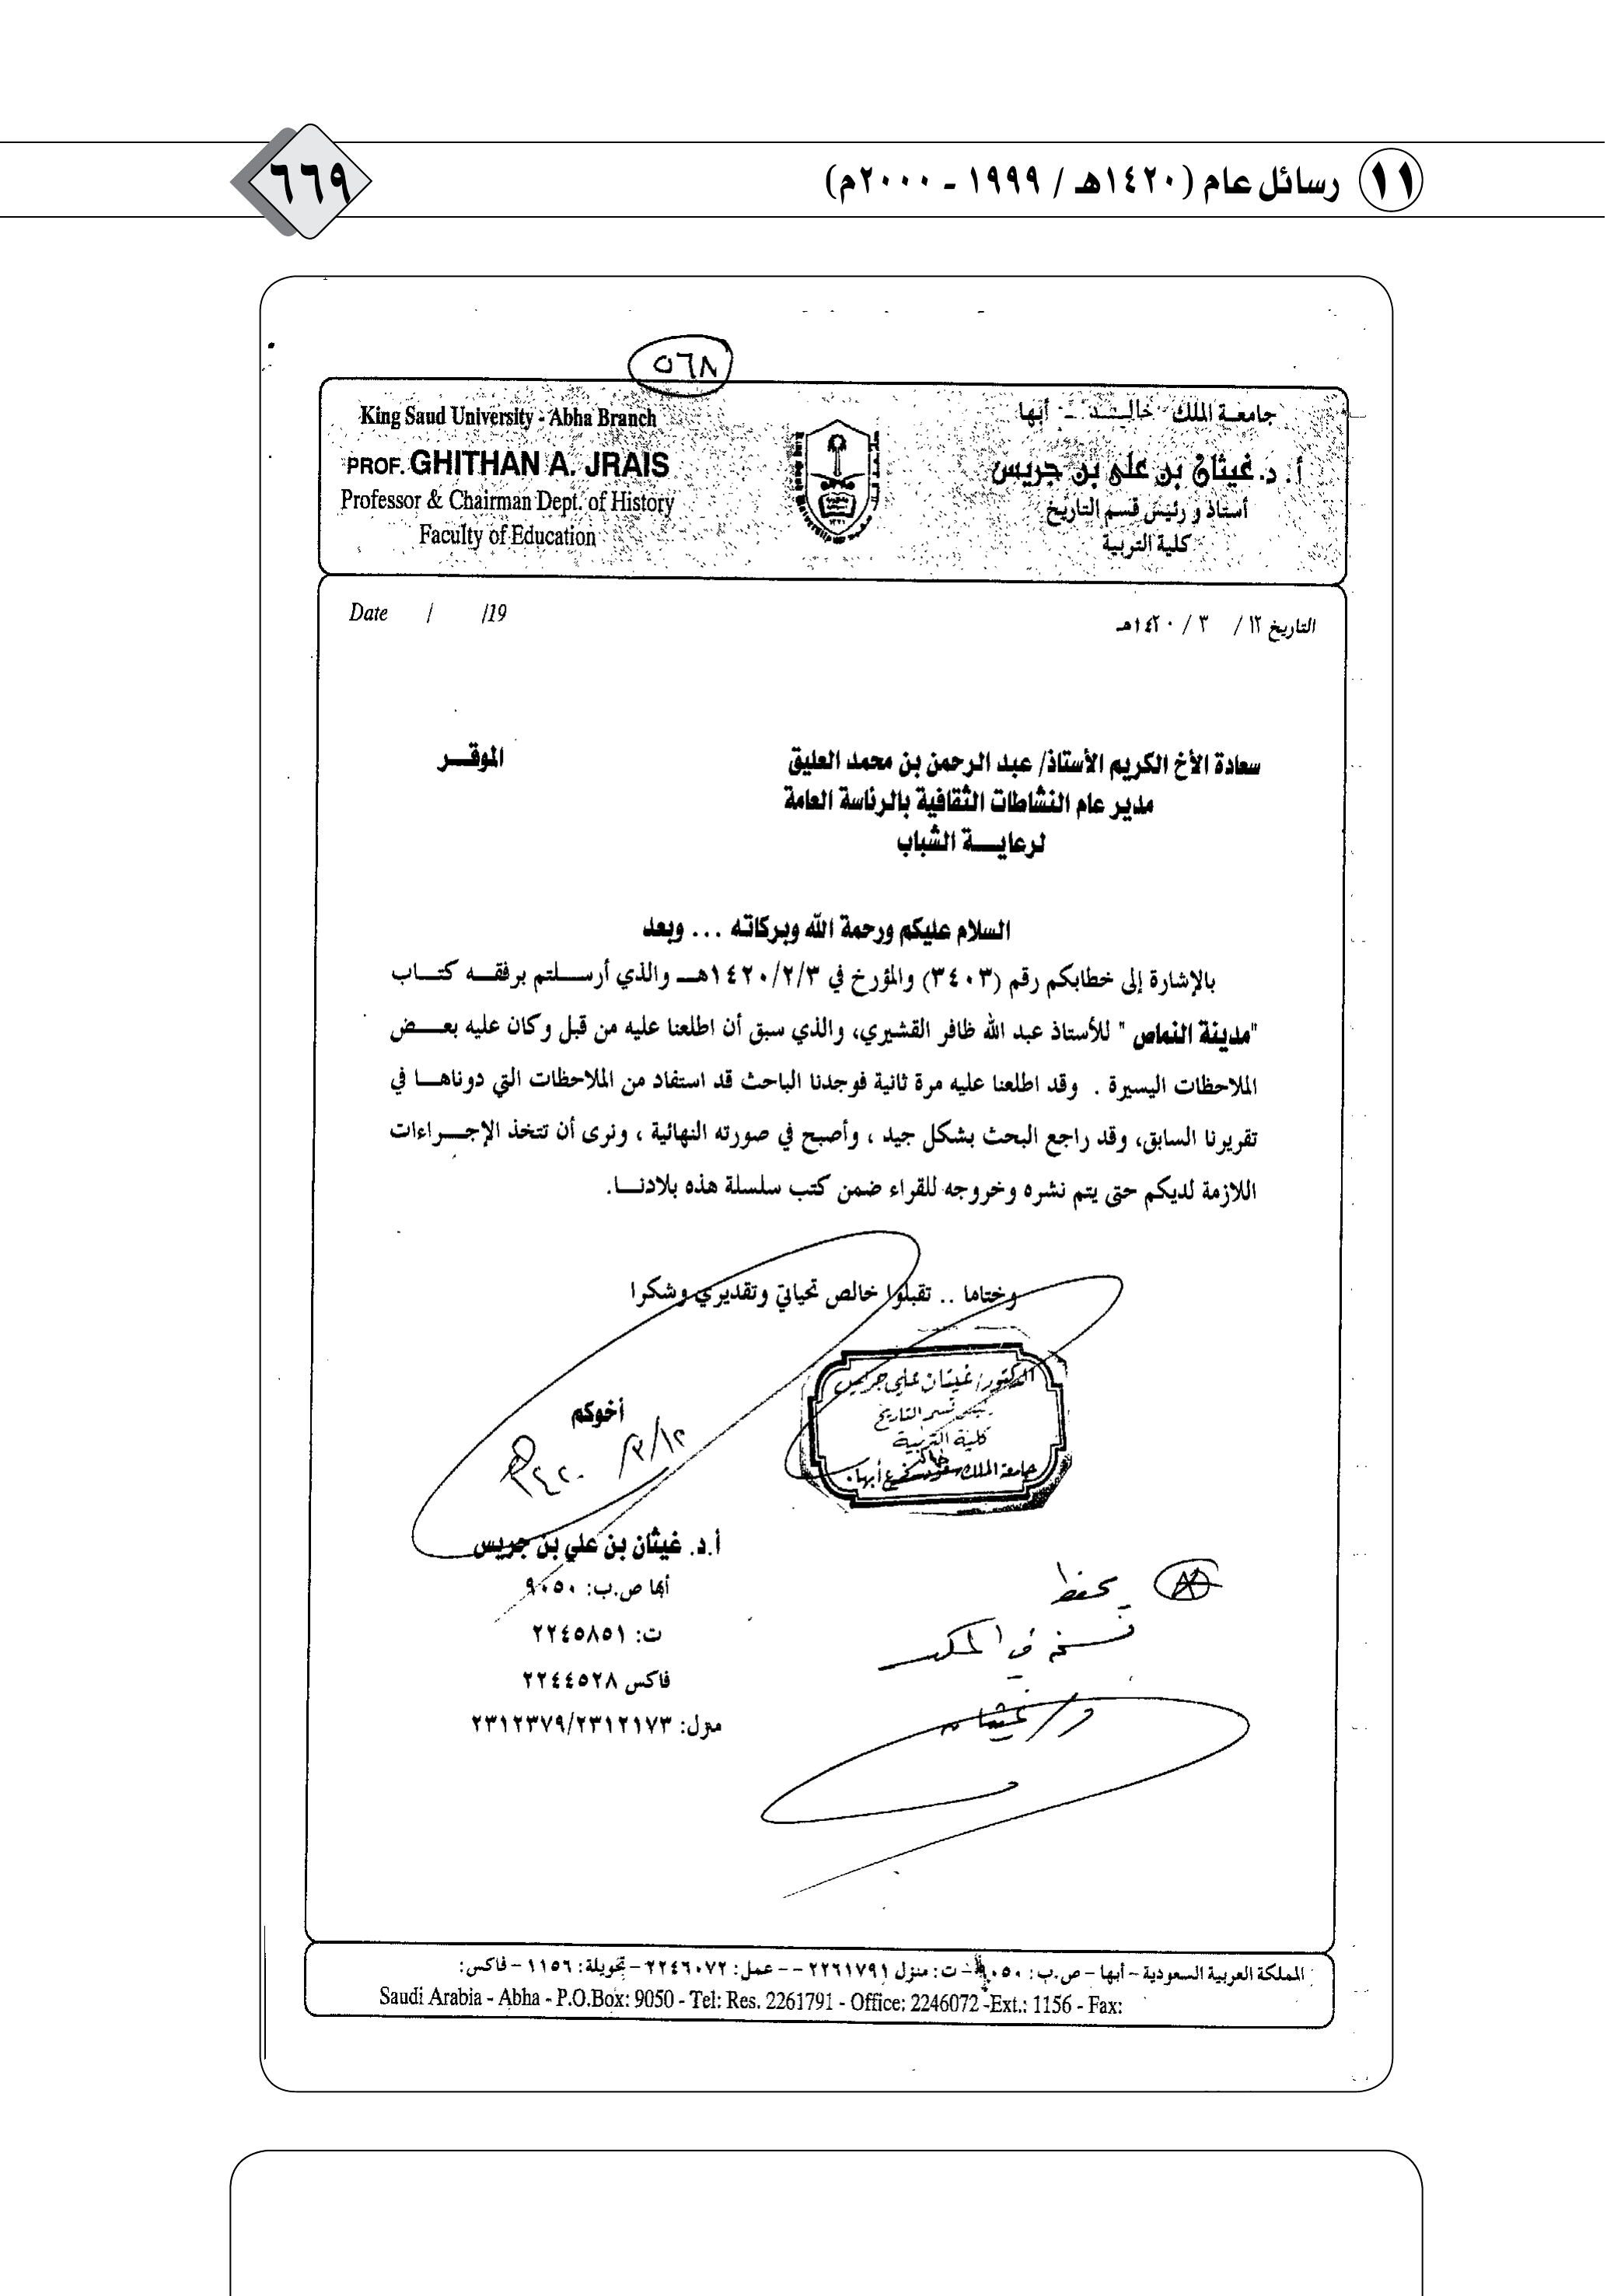 ١١ رسائل عام (١٤٢٠هـ / ١٩٩٩ - ٢٠٠٠م)
٦٦٩
٥٦٨
جامعة الملك خالد - أبها
أ. د. غيثان بن علي بن جريس
أستاذ و رئيس قسم التاريخ
كلية التربية
King Saud University - Abha Branch
PROF. GHITHAN A. JRAIS
Professor & Chairman Dept. of History
Faculty of Education
التاريخ ١٢/ ٣ / ١٤٢٠هـ
Date / /19
سعادة الأخ الكريم الأستاذ/ عبد الرحمن بن محمد العليق الموقـر
مدير عام النشاطات الثقافية بالرئاسة العامة
لرعايـة الشباب
السلام عليكم ورحمة الله وبركاته ... وبعد
بالإشارة إلى خطابكم رقم (٣٤٠٣) والمؤرخ في ١٤٢٠/٢/٣هـ والذي أرسلتم برفقه كتاب
"مدينة النماص" للأستاذ عبد الله ظافر القشيري، والذي سبق أن اطلعنا عليه من قبل وكان عليه بعض
الملاحظات اليسيرة . وقد اطلعنا عليه مرة ثانية فوجدنا الباحث قد استفاد من الملاحظات التي دوناها في
تقريرنا السابق، وقد راجع البحث بشكل جيد ، وأصبح في صورته النهائية ، ونرى أن تتخذ الإجراءات
اللازمة لديكم حتى يتم نشره وخروجه للقراء ضمن كتب سلسلة هذه بلادنا.
وختاما .. تقبلوا خالص تحياتي وتقديري وشكرا
الدكتور/ غيثان علي جريس
رئيس قسم التاريخ
كلية التربية
جامعة الملك سعود فرع أبها
خالد
أخوكم
أ.د. غيثان بن علي بن جريس
أبها ص.ب: ٩٠٥٠
ت: ٢٢٤٥٨٥١
فاكس ٢٢٤٤٥٢٨
منزل: ٢٣١٢٣٧٩/٢٣١٢١٧٣
يحفظ
نسخة في
د/ غيثان
المملكة العربية السعودية - أبها - ص.ب: ٩٠٥٠ - ت: منزل ٢٢٦١٧٩١ -- عمل: ٢٢٤٦٠٧٢ - تحويلة: ١١٥٦ - فاكس:
Saudi Arabia - Abha - P.O.Box: 9050 - Tel: Res. 2261791 - Office: 2246072 -Ext.: 1156 - Fax: